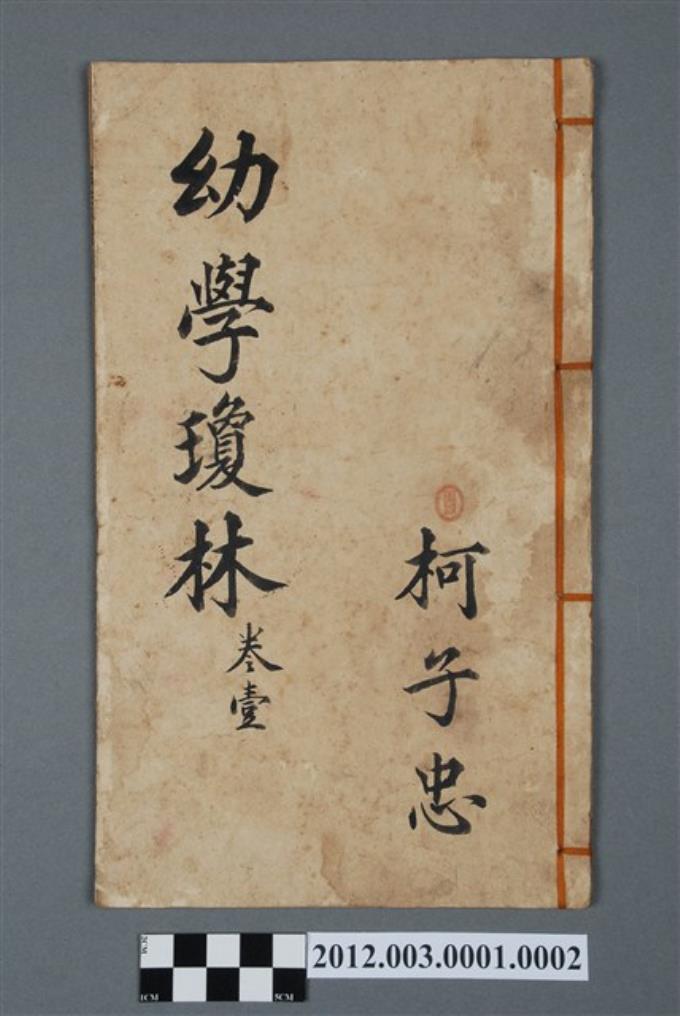 柯子忠
幼學瓊林
卷壹
2012.003.0001.0002
2CM
1CM
5CM